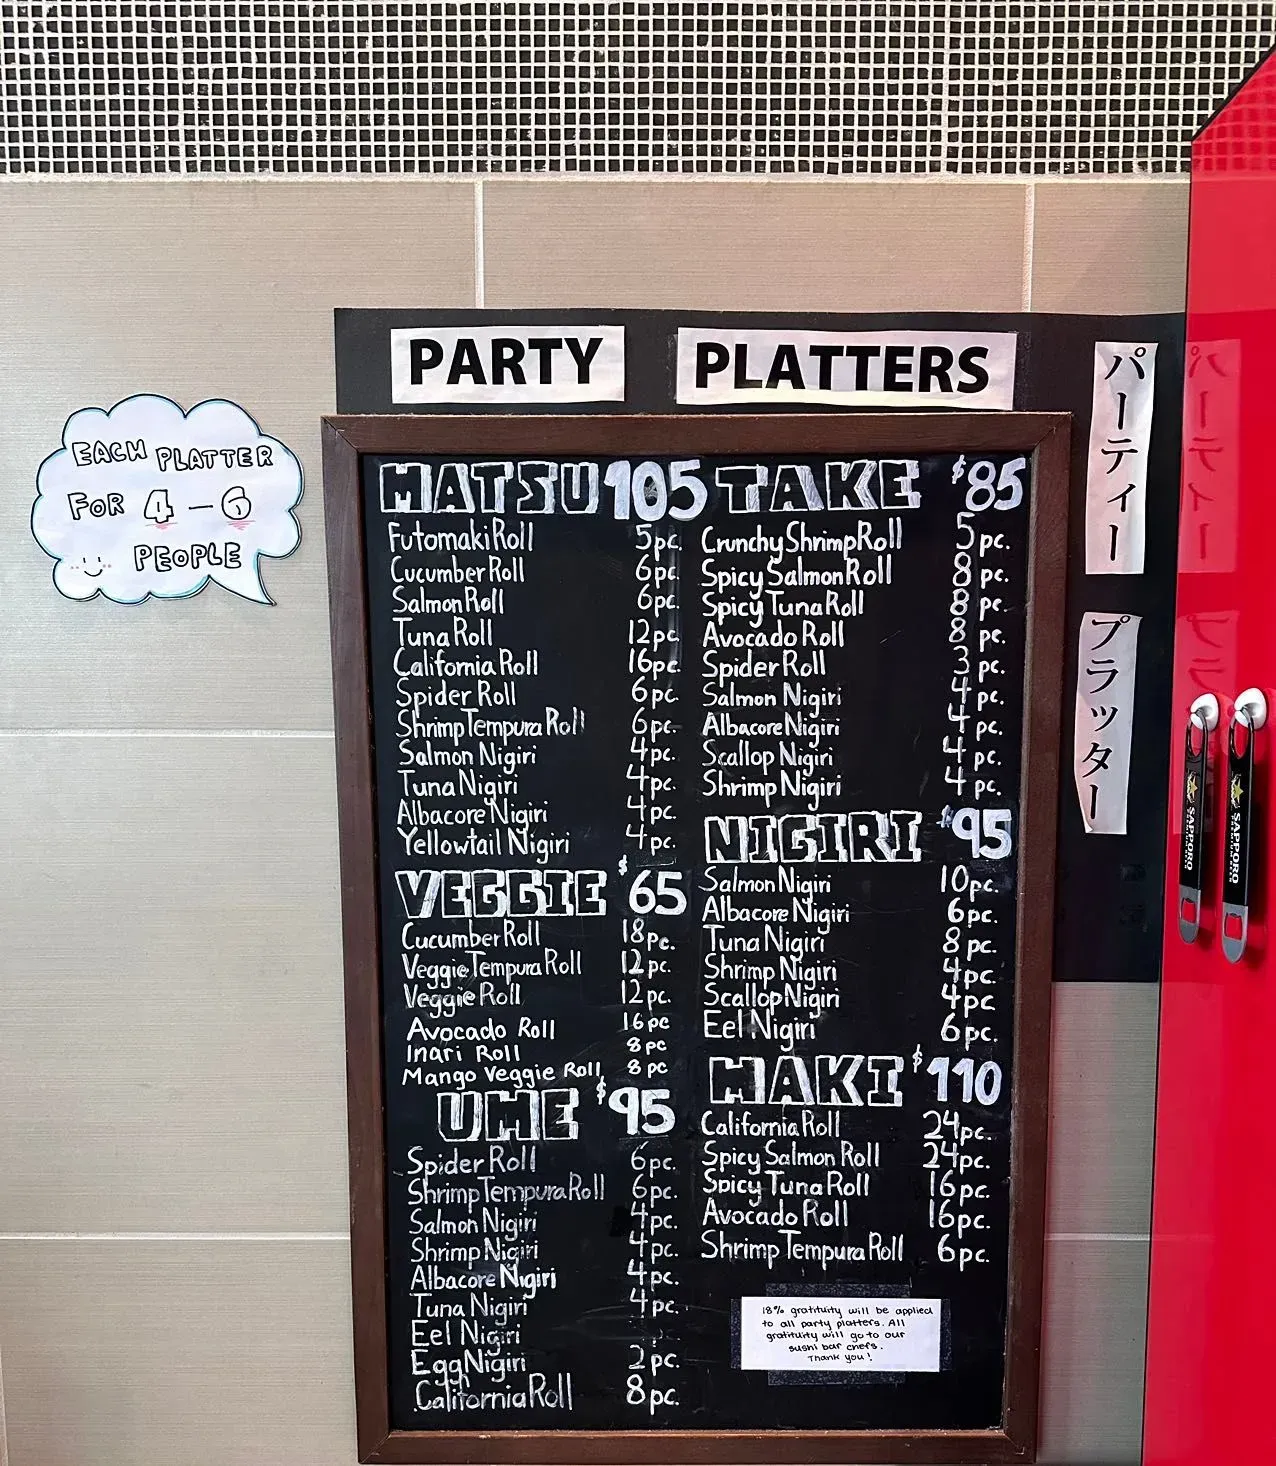 PARTY PLATTERS
パーティー
プラッター
EACH PLATTER
FOR 4 - 6
PEOPLE
MATSU 105
Futomaki Roll 5pc.
Cucumber Roll 6pc.
Salmon Roll 6pc.
Tuna Roll 12pc.
California Roll 16pc.
Spider Roll 6pc.
Shrimp Tempura Roll 6pc.
Salmon Nigiri 4pc.
Tuna Nigiri 4pc.
Albacore Nigiri 4pc.
Yellowtail Nigiri 4pc.
VEGGIE $65
Cucumber Roll 18pc.
Veggie Tempura Roll 12pc.
Veggie Roll 12pc.
Avocado Roll 16pc
Inari Roll 8pc
Mango Veggie Roll 8pc
UME $95
Spider Roll 6pc.
Shrimp Tempura Roll 6pc.
Salmon Nigiri 4pc.
Shrimp Nigiri 4pc.
Albacore Nigiri 4pc.
Tuna Nigiri 4pc.
Eel Nigiri
Egg Nigiri 2pc.
California Roll 8pc.
TAKE $85
Crunchy Shrimp Roll 5pc.
Spicy Salmon Roll 8pc.
Spicy Tuna Roll 8pc.
Avocado Roll 8pc.
Spider Roll 3pc.
Salmon Nigiri 4pc.
Albacore Nigiri 4pc.
Scallop Nigiri 4pc.
Shrimp Nigiri 4pc.
NIGIRI $95
Salmon Nigiri 10pc.
Albacore Nigiri 6pc.
Tuna Nigiri 8pc.
Shrimp Nigiri 4pc.
Scallop Nigiri 4pc
Eel Nigiri 6pc.
MAKI $110
California Roll 24pc.
Spicy Salmon Roll 24pc.
Spicy Tuna Roll 16pc.
Avocado Roll 16pc.
Shrimp Tempura Roll 6pc.
18% gratituity will be applied
to all party platters. All
gratituity will go to our
sushi bar chefs.
Thank you!
SAPPORO
SAPPORO